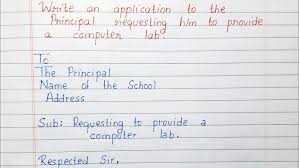 Write an application to the
Principal requesting him to provide
a computer lab
To
The Principal
Name of the School.
Address
Sub: Requesting to provide a
computer lab.
Respected Sir,